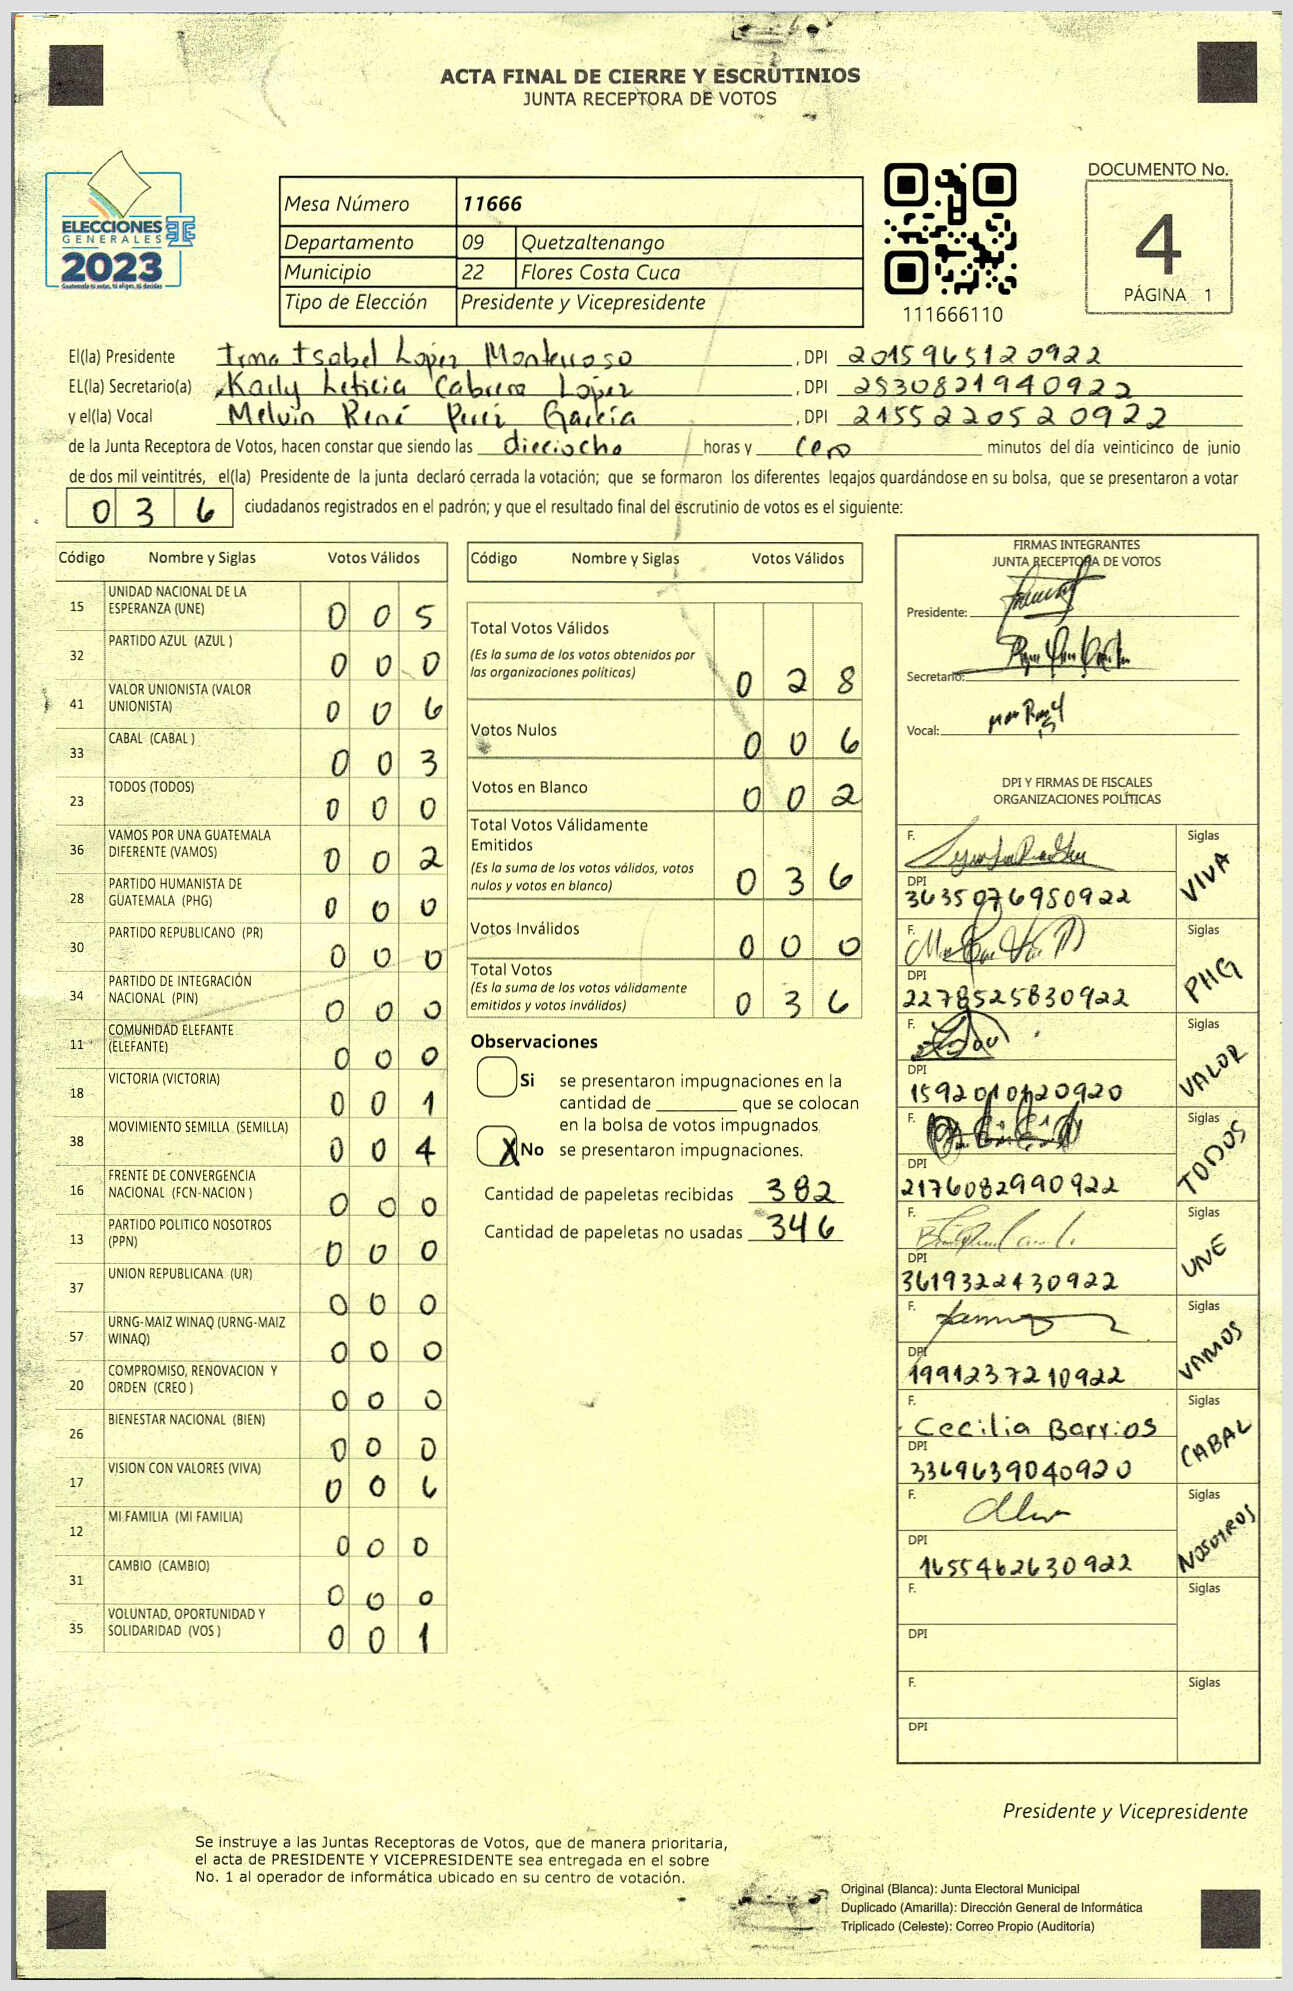 ACTA FINAL DE CIERRE Y ESCRUTINIOS
JUNTA RECEPTORA DE VOTOS
ELECCIONES
GENERALES
2023
Guatemala tú votas, tú eliges, tú decides
Mesa Número 11666
Departamento 09 Quetzaltenango
Municipio 22 Flores Costa Cuca
Tipo de Elección Presidente y Vicepresidente
111666110
DOCUMENTO No.
4
PÁGINA 1
El(la) Presidente Irma Isabel López Monterroso, DPI 2015965120922
EL(la) Secretario(a) Karly Leticia Cabrera López, DPI 2530821940922
y el(la) Vocal Melvin René Perez García, DPI 2155220520922
de la Junta Receptora de Votos, hacen constar que siendo las dieciocho horas y cero minutos del día veinticinco de junio
de dos mil veintitrés, el(la) Presidente de la junta declaró cerrada la votación; que se formaron los diferentes legajos guardándose en su bolsa, que se presentaron a votar
036 ciudadanos registrados en el padrón; y que el resultado final del escrutinio de votos es el siguiente:
Código Nombre y Siglas Votos Válidos
15 UNIDAD NACIONAL DE LA ESPERANZA (UNE) 005
32 PARTIDO AZUL (AZUL ) 000
41 VALOR UNIONISTA (VALOR UNIONISTA) 006
33 CABAL (CABAL ) 003
23 TODOS (TODOS) 000
36 VAMOS POR UNA GUATEMALA DIFERENTE (VAMOS) 002
28 PARTIDO HUMANISTA DE GUATEMALA (PHG) 000
30 PARTIDO REPUBLICANO (PR) 000
34 PARTIDO DE INTEGRACIÓN NACIONAL (PIN) 000
11 COMUNIDAD ELEFANTE (ELEFANTE) 000
18 VICTORIA (VICTORIA) 001
38 MOVIMIENTO SEMILLA (SEMILLA) 004
16 FRENTE DE CONVERGENCIA NACIONAL (FCN-NACION ) 000
13 PARTIDO POLITICO NOSOTROS (PPN) 000
37 UNION REPUBLICANA (UR) 000
57 URNG-MAIZ WINAQ (URNG-MAIZ WINAQ) 000
20 COMPROMISO, RENOVACION Y ORDEN (CREO ) 000
26 BIENESTAR NACIONAL (BIEN) 000
17 VISION CON VALORES (VIVA) 006
12 MI FAMILIA (MI FAMILIA) 000
31 CAMBIO (CAMBIO) 000
35 VOLUNTAD, OPORTUNIDAD Y SOLIDARIDAD (VOS ) 001
Código Nombre y Siglas Votos Válidos
Total Votos Válidos
(Es la suma de los votos obtenidos por
las organizaciones políticas) 028
Votos Nulos 006
Votos en Blanco 002
Total Votos Válidamente
Emitidos
(Es la suma de los votos válidos, votos
nulos y votos en blanco) 036
Votos Inválidos 000
Total Votos
(Es la suma de los votos válidamente
emitidos y votos inválidos) 036
Observaciones
Si se presentaron impugnaciones en la
cantidad de ________ que se colocan
en la bolsa de votos impugnados
X No se presentaron impugnaciones.
Cantidad de papeletas recibidas 382
Cantidad de papeletas no usadas 346
FIRMAS INTEGRANTES
JUNTA RECEPTORA DE VOTOS
Presidente:
Secretario:
Vocal:
DPI Y FIRMAS DE FISCALES
ORGANIZACIONES POLÍTICAS
F. Siglas VIVA
DPI 3635076980922
F. Siglas PHG
DPI 2278525830922
F. Siglas VALOR
DPI 1592010120920
F. Siglas TODOS
DPI 2176082990922
F. Siglas UNE
DPI 3619322430922
F. Siglas VAMOS
DPI 1991237210922
F. Cecilia Barrios Siglas CABAL
DPI 3369639040920
F. Siglas NOSOTROS
DPI 1655462630922
F. Siglas
DPI
F. Siglas
DPI
Presidente y Vicepresidente
Se instruye a las Juntas Receptoras de Votos, que de manera prioritaria,
el acta de PRESIDENTE Y VICEPRESIDENTE sea entregada en el sobre
No. 1 al operador de informática ubicado en su centro de votación.
Original (Blanca): Junta Electoral Municipal
Duplicado (Amarilla): Dirección General de Informática
Triplicado (Celeste): Correo Propio (Auditoría)